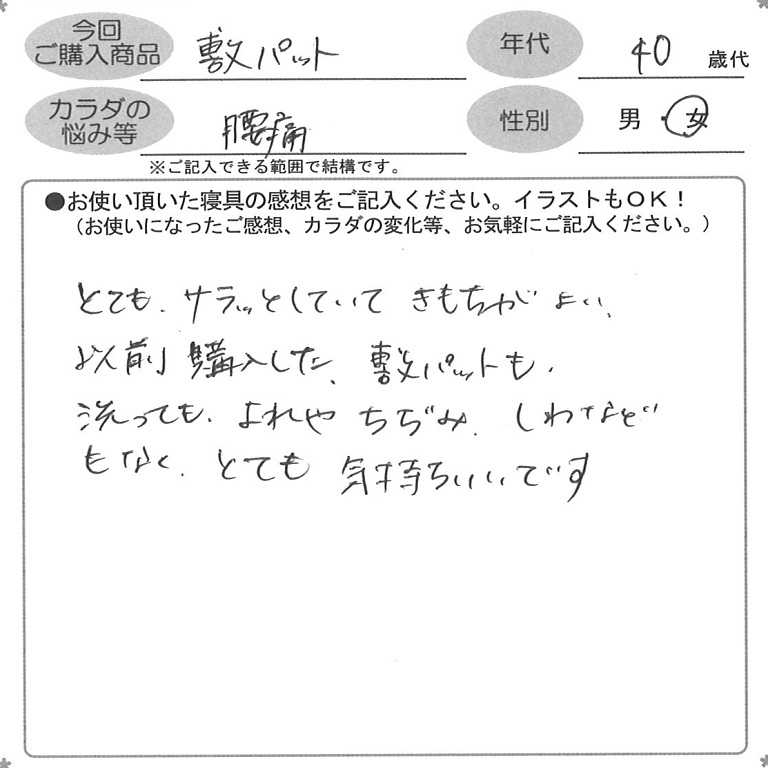 今回
ご購入商品
敷パット
年代
40 歳代
カラダの
悩み等
腰痛
性別
男・女
※ご記入できる範囲で結構です。
●お使い頂いた寝具の感想をご記入ください。イラストもOK!
(お使いになったご感想、カラダの変化等、お気軽にご記入ください。)
とても、サラッとしていて きもちがよい、
以前購入した、敷パットも、
洗っても、よれや ちぢみ、しわなど
もなく、とても 気持ちいいです